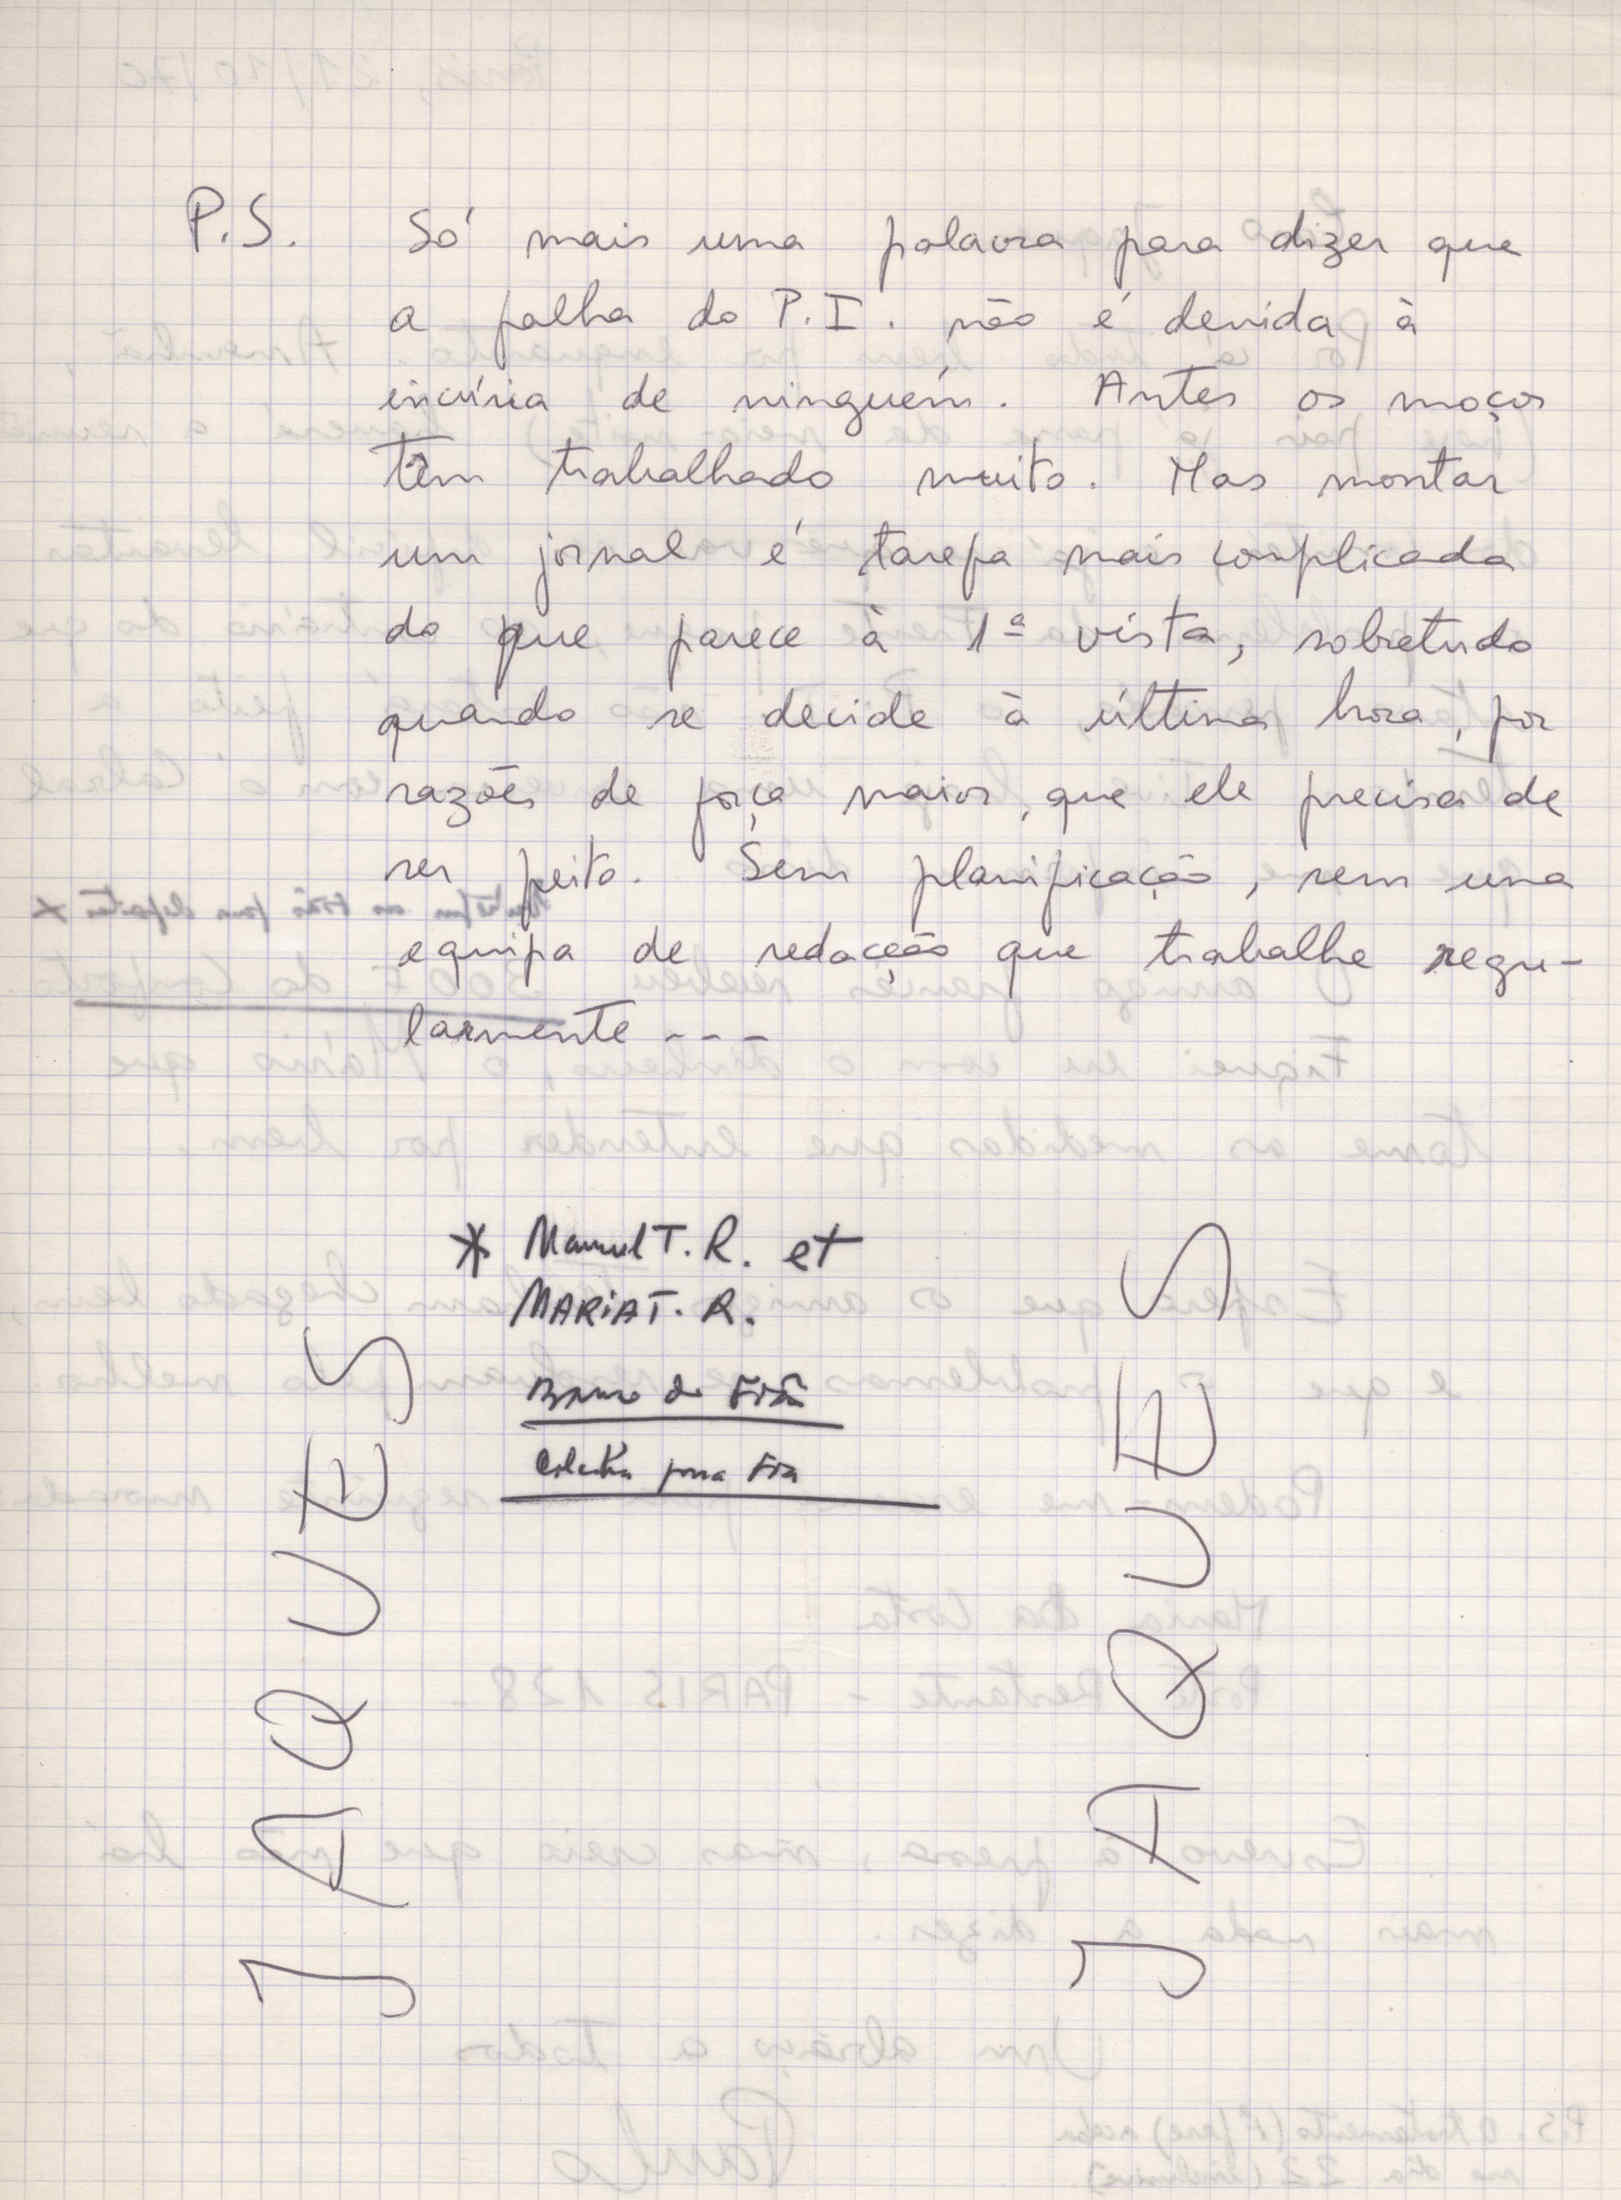 P.S. Só mais uma palavra para dizer que
a falha do P.I. não é devida à
incúria de ninguém. Antes os moços
têm trabalhado muito. Mas montar
um jornal é tarefa mais complicada
do que parece à 1ª vista, sobretudo
quando se decide à última hora, por
razões de força maior, que ele precisa de
ser feito. Sem planificação, sem uma
equipa de redacção que trabalhe regu-
larmente ---
* Manuel T. R. et
MARIA T. R.
de
para
JAQUES
JAQUES